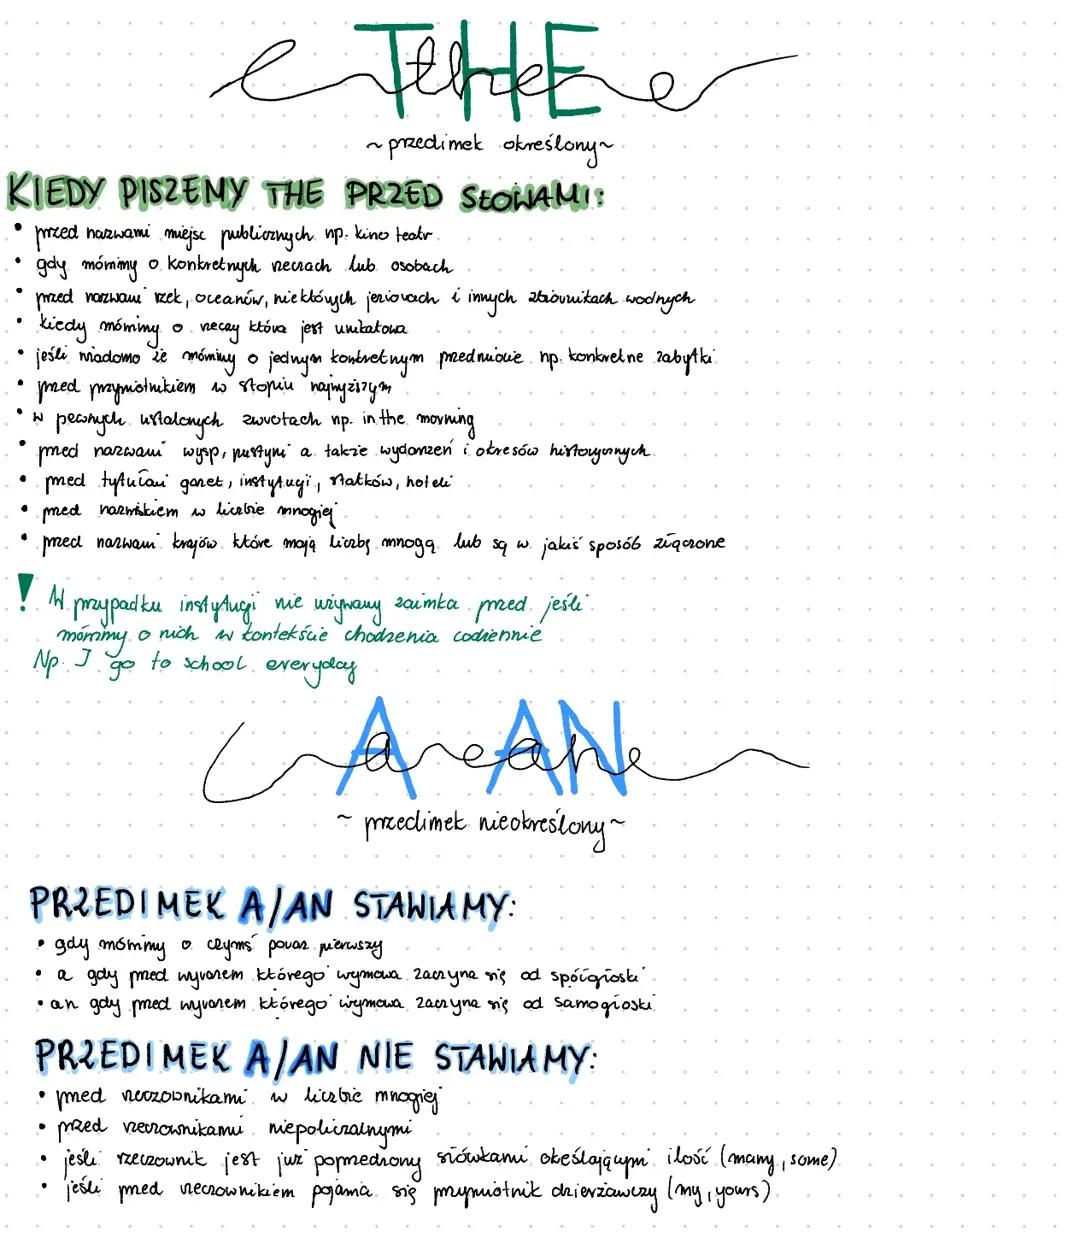 THE
the
~ przedimek określony ~
KIEDY PISZEMY THE PRZED SŁOWAMI:
• przed nazwami miejsc publicznych np. kino teatr
• gdy mówimy o konkretnych rzeczach lub osobach
• przed nazwami rzek, oceanów, niektórych jeziorach i innych zbiornikach wodnych
• kiedy mówimy o rzeczy która jest unikatowa
• jeśli wiadomo że mówimy o jednym konkretnym przedmiocie np. konkretne zabytki
• przed przymiotnikiem w stopniu najwyższym
• w pewnych ustalonych zwrotach np. in the morning
• przed nazwami wysp, pustyni a także wydarzeń i okresów historycznych
• przed tytułami gazet, instytucji, statków, hoteli
• przed nazwiskiem w liczbie mnogiej
• przed nazwami krajów które mają liczbę mnogą lub są w jakiś sposób złączone
! W przypadku instytucji nie używamy zaimka przed jeśli
mówimy o nich w kontekście chodzenia codziennie
Np. I go to school everyday
A AN
a an
~ przedimek nieokreślony ~
PRZEDIMEK A/AN STAWIAMY:
• gdy mówimy o czymś poraz pierwszy
• a gdy przed wyrazem którego wymowa zaczyna się od spółgłoski
• an gdy przed wyrazem którego wymowa zaczyna się od samogłoski
PRZEDIMEK A/AN NIE STAWIAMY:
• przed rzeczownikami w liczbie mnogiej
• przed rzeczownikami niepoliczalnymi
• jeśli rzeczownik jest już poprzedzony słówkami określającymi ilość (many, some)
• jeśli przed rzeczownikiem pojawia się przymiotnik dzierżawczy (my, yours)